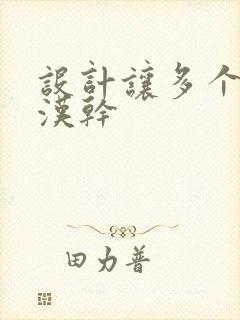 設計讓多个
漢幹
田力普